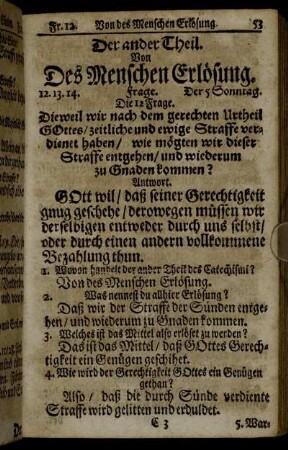 Fr. 12. Von des Menschen Erlösung. 53
Der ander Theil.
Von
Des Menschen Erlösung.
12. 13. 14. Frage. Der 5 Sonntag.
Die 12 Frage.
Dieweil wir nach dem gerechten Urtheil
GOttes / zeitliche und ewige Straffe ver-
dienet haben / wie mögten wir dieser
Straffe entgehen / und wiederum
zu Gnaden kommen?
Antwort.
GOtt wil / daß seiner Gerechtigkeit
gnug geschehe / derowegen müssen wir
derselbigen entweder durch uns selbst /
oder durch einen andern vollkommene
Bezahlung thun.
1. Wovon handelt der ander Theil des Catechismi?
Von des Menschen Erlösung.
2. Was nennest du allhier Erlösung?
Daß wir der Straffe der Sünden entge-
hen / und wiederum zu Gnaden kommen.
3. Welches ist das Mittel also erlöset zu werden?
Das ist das Mittel / daß GOttes Gerech-
tigkeit ein Genügen geschihet.
4. Wie wird der Gerechtigkeit GOttes ein Genügen
gethan?
Also / daß die durch Sünde verdiente
Straffe wird gelitten und erduldet.
C 3 5. War-